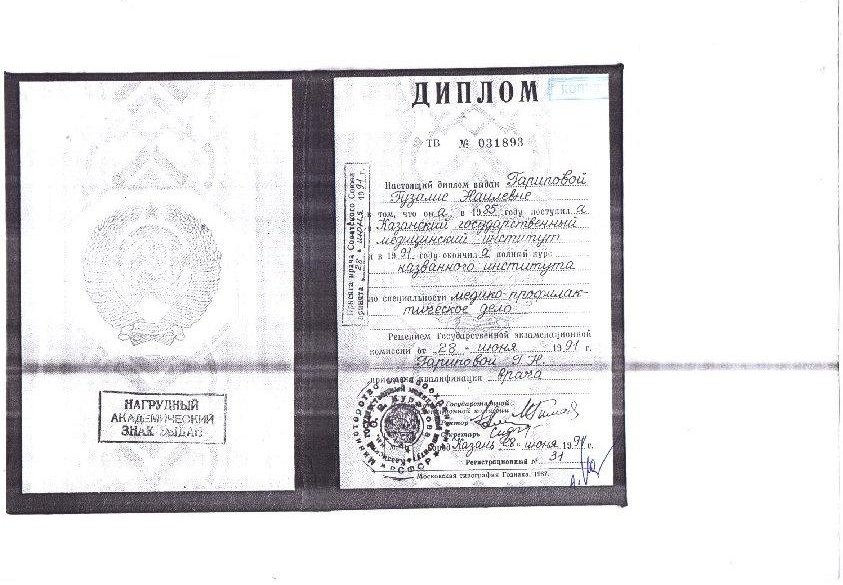 НАГРУДНЫЙ
АКАДЕМИЧЕСКИЙ
ЗНАК ВЫДАН
ДИПЛОМ
КОПИЯ
ТВ № 031893
Настоящий диплом выдан Гариповой
Гузалие Наилевне
в том, что она в 1985 году поступила
в Казанский государственный
медицинский институт
и в 1991 году окончила полный курс
названного института
по специальности медико-профилак-
тическое дело
Решением Государственной экзаменационной
комиссии от 28 июня 1991 г.
Гариповой Г. Н.
присвоена квалификация врача
Государственной
экзаменационной комиссии
Ректор
Секретарь
Город Казань 28 июня 1991 г.
Регистрационный № 31
Московская типография Гознака. 1987.
Присяга врача Советского Союза
принята 28 июня 1991 г.